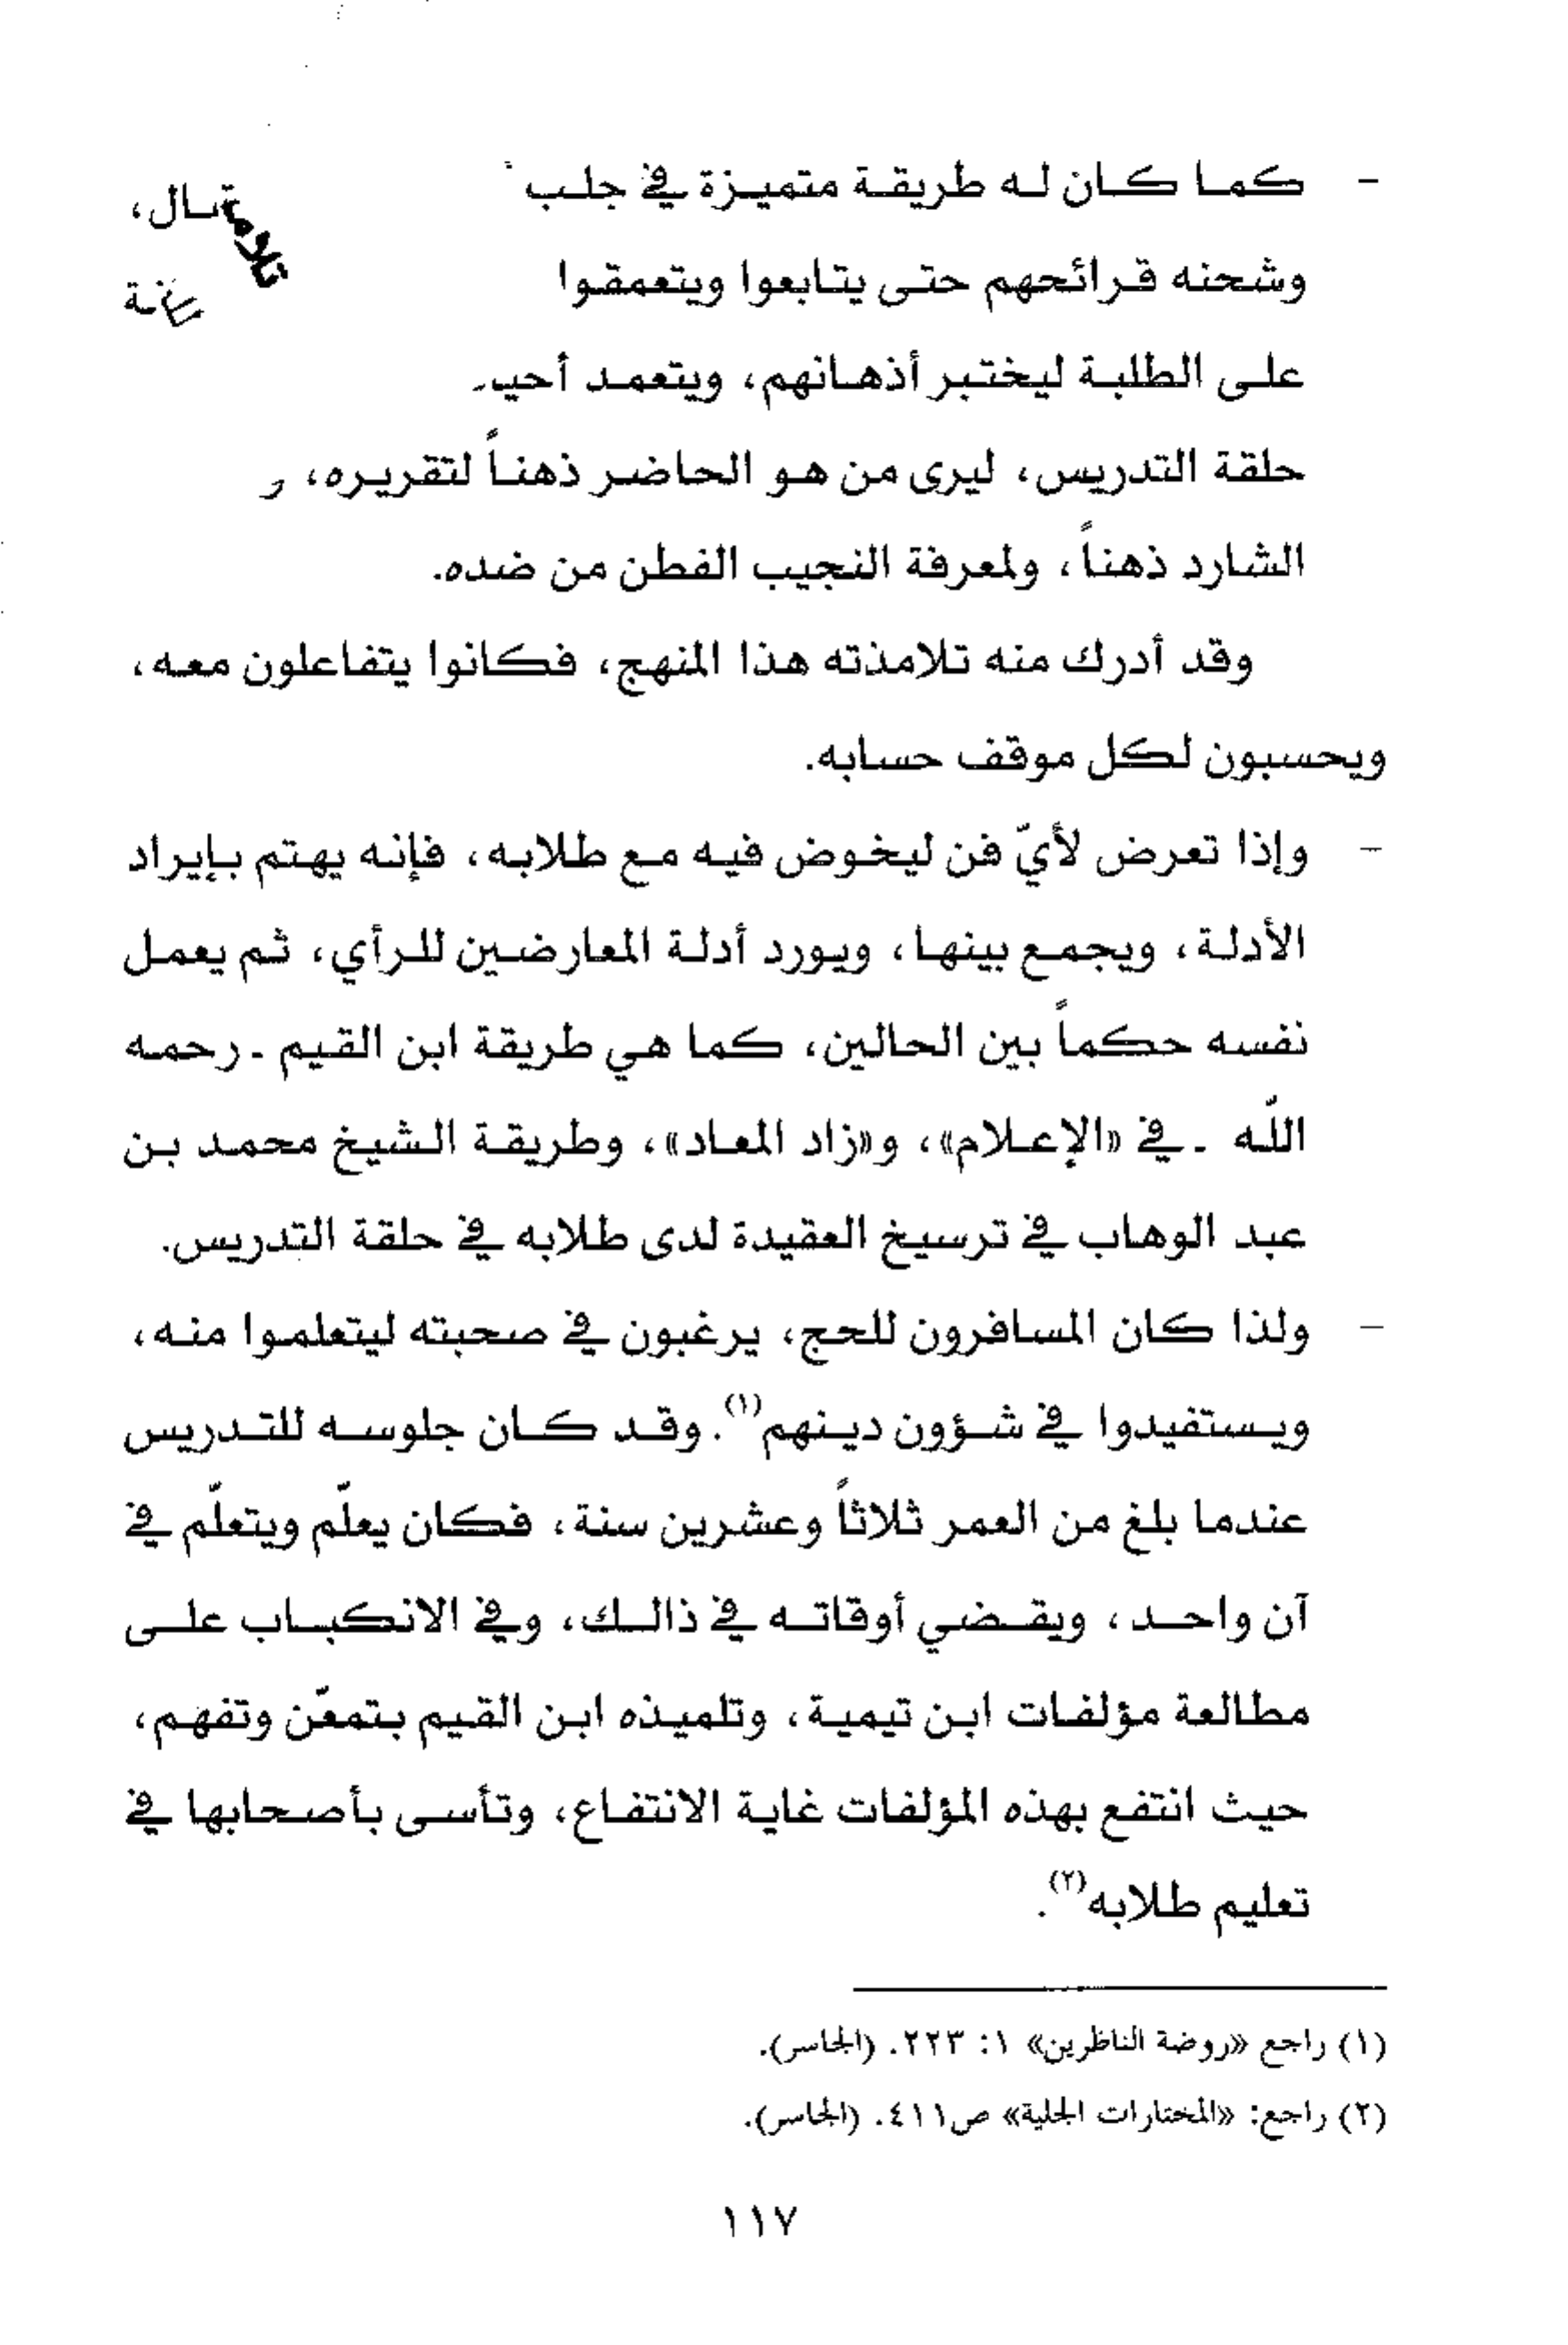 - كما كان له طريقة متميزة في جلب
وشحنه قرائحهم حتى يتابعوا ويتعمقوا
على الطلبة ليختبر أذهانهم، ويتعمد
حلقة التدريس، ليرى من هو الحاضر ذهناً لتقريره،
الشارد ذهناً، ولمعرفة النجيب الفطن من ضده.
وقد أدرك منه تلامذته هذا المنهج، فكانوا يتفاعلون معه،
ويحسبون لكل موقف حسابه.
- وإذا تعرض لأيّ فن ليخوض فيه مع طلابه، فإنه يهتم بإيراد
الأدلة، ويجمع بينها، ويورد أدلة المعارضين للرأي، ثم يعمل
نفسه حكماً بين الحالين، كما هي طريقة ابن القيم - رحمه
اللّه - في «الإعلام»، و«زاد المعاد»، وطريقة الشيخ محمد بن
عبد الوهاب في ترسيخ العقيدة لدى طلابه في حلقة التدريس.
- ولذا كان المسافرون للحج، يرغبون في صحبته ليتعلموا منه،
ويستفيدوا في شؤون دينهم(١). وقد كان جلوسه للتدريس
عندما بلغ من العمر ثلاثاً وعشرين سنة، فكان يعلّم ويتعلّم في
آن واحد، ويقضي أوقاته في ذالك، وفي الانكباب على
مطالعة مؤلفات ابن تيمية، وتلميذه ابن القيم بتمعّن وتفهم،
حيث انتفع بهذه المؤلفات غاية الانتفاع، وتأسى بأصحابها في
تعليم طلابه(٢).
(١) راجع «روضة الناظرين» ١: ٢٢٣. (الجاسر).
(٢) راجع: «المختارات الجلية» ص٤١١. (الجاسر).
١١٧